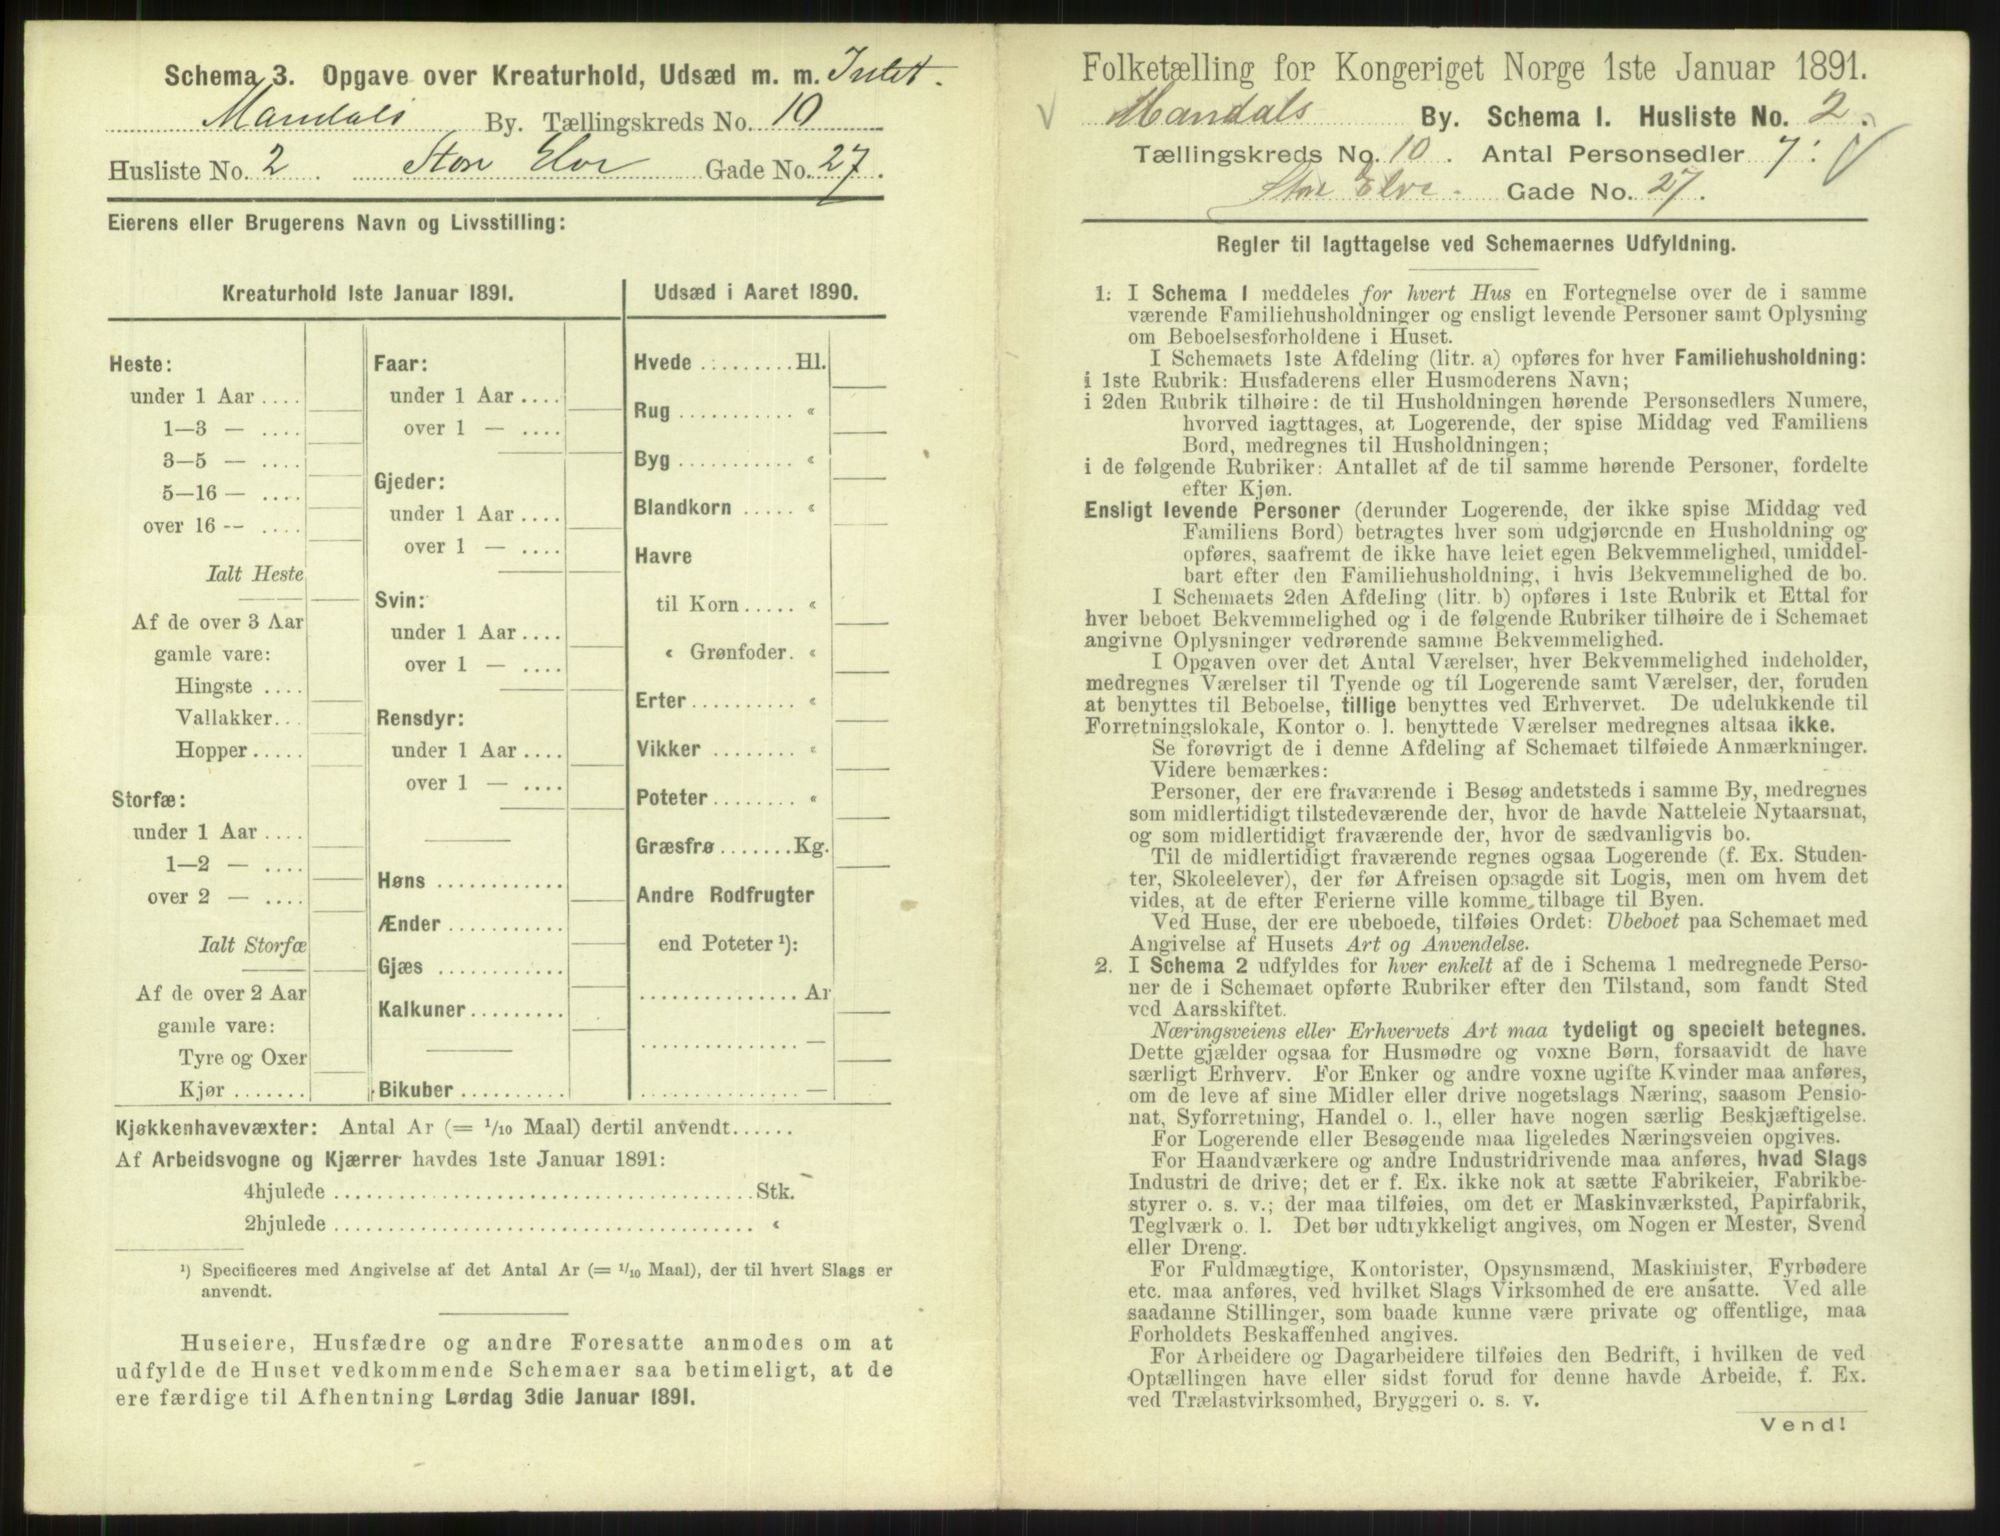 Schema 3. Opgave over Kreaturhold, Udsæd m. m. Intet.
Mandals By. Tællingskreds No. 10
Husliste No. 2. Store Elve Gade No. 27.
Eierens eller Brugerens Navn og Livsstilling:
Kreaturhold 1ste Januar 1891.
Heste:
under 1 Aar ....
1—3 — ....
3—5 — ....
5—16 — ....
over 16 -- ....
Ialt Heste
Af de over 3 Aar
gamle vare:
Hingste ....
Vallakker...
Hopper .....
Storfæ:
under 1 Aar ....
1—2 — ....
over 2 — ....
Ialt Storfæ
Af de over 2 Aar
gamle vare:
Tyre og Oxer
Kjør .......
Faar:
under 1 Aar ....
over 1 — ....
Gjeder:
under 1 Aar ....
over 1 — ....
Svin:
under 1 Aar ....
over 1 — ....
Rensdyr:
under 1 Aar ....
over 1 — ....
Høns ............
Ænder ...........
Gjæs ............
Kalkuner.........
Bikuber ..........
Udsæd i Aaret 1890.
Hvede .........Hl.
Rug ........... «
Byg ........... «
Blandkorn ..... «
Havre
til Korn ..... «
« Grønfoder. «
Erter .......... «
Vikker ......... «
Poteter ........ «
Græsfrø .......Kg.
Andre Rodfrugter
end Poteter ¹):
...............Ar
............... —
............... —
Kjøkkenhavevæxter: Antal Ar (= 1/10 Maal) dertil anvendt......
Af Arbeidsvogne og Kjærrer havdes 1ste Januar 1891:
4hjulede ........................................Stk.
2hjulede ........................................ «
¹) Specificeres med Angivelse af det Antal Ar (= 1/10 Maal), der til hvert Slags er
anvendt.
Huseiere, Husfædre og andre Foresatte anmodes om at
udfylde de Huset vedkommende Schemaer saa betimeligt, at de
ere færdige til Afhentning Lørdag 3die Januar 1891.
Folketælling for Kongeriget Norge 1ste Januar 1891.
Mandals By. Schema I. Husliste No. 2.
Tællingskreds No. 10. Antal Personsedler 7.
Store Elve. Gade No. 27.
Regler til Iagttagelse ved Schemaernes Udfyldning.
1: I Schema 1 meddeles for hvert Hus en Fortegnelse over de i samme
værende Familiehusholdninger og ensligt levende Personer samt Oplysning
om Beboelsesforholdene i Huset.
I Schemaets 1ste Afdeling (litr. a) opføres for hver Familiehusholdning:
i 1ste Rubrik: Husfaderens eller Husmoderens Navn;
i 2den Rubrik tilhøire: de til Husholdningen hørende Personsedlers Numere,
hvorved iagttages, at Logerende, der spise Middag ved Familiens
Bord, medregnes til Husholdningen;
i de følgende Rubriker: Antallet af de til samme hørende Personer, fordelte
efter Kjøn.
Ensligt levende Personer (derunder Logerende, der ikke spise Middag ved
Familiens Bord) betragtes hver som udgjørende en Husholdning og
opføres, saafremt de ikke have leiet egen Bekvemmelighed, umiddel-
bart efter den Familiehusholdning, i hvis Bekvemmelighed de bo.
I Schemaets 2den Afdeling (litr. b) opføres i 1ste Rubrik et Ettal for
hver beboet Bekvemmelighed og i de følgende Rubriker tilhøire de i Schemaet
angivne Oplysninger vedrørende samme Bekvemmelighed.
I Opgaven over det Antal Værelser, hver Bekvemmelighed indeholder,
medregnes Værelser til Tyende og til Logerende samt Værelser, der, foruden
at benyttes til Beboelse, tillige benyttes ved Erhvervet. De udelukkende til
Forretningslokale, Kontor o. l. benyttede Værelser medregnes altsaa ikke.
Se forøvrigt de i denne Afdeling af Schemaet tilføiede Anmærkninger.
Videre bemærkes:
Personer, der ere fraværende i Besøg andetsteds i samme By, medregnes
som midlertidigt tilstedeværende der, hvor de havde Natteleie Nytaarsnat,
og som midlertidigt fraværende der, hvor de sædvanligvis bo.
Til de midlertidigt fraværende regnes ogsaa Logerende (f. Ex. Studen-
ter, Skoleelever), der før Afreisen opsagde sit Logis, men om hvem det
vides, at de efter Ferierne ville komme tilbage til Byen.
Ved Huse, der ere ubeboede, tilføies Ordet: Ubeboet paa Schemaet med
Angivelse af Husets Art og Anvendelse.
2. I Schema 2 udfyldes for hver enkelt af de i Schema 1 medregnede Perso-
ner de i Schemaet opførte Rubriker efter den Tilstand, som fandt Sted
ved Aarsskiftet.
Næringsveiens eller Erhvervets Art maa tydeligt og specielt betegnes.
Dette gjælder ogsaa for Husmødre og voxne Børn, forsaavidt de have
særligt Erhverv. For Enker og andre voxne ugifte Kvinder maa anføres,
om de leve af sine Midler eller drive nogetslags Næring, saasom Pensio-
nat, Syforretning, Handel o. l., eller have nogen særlig Beskjæftigelse.
For Logerende eller Besøgende maa ligeledes Næringsveien opgives.
For Haandværkere og andre Industridrivende maa anføres, hvad Slags
Industri de drive; det er f. Ex. ikke nok at sætte Fabrikeier, Fabrikbe-
styrer o. s. v.; der maa tilføies, om det er Maskinværksted, Papirfabrik,
Teglværk o. l. Det bør udtrykkeligt angives, om Nogen er Mester, Svend
eller Dreng.
For Fuldmægtige, Kontorister, Opsynsmænd, Maskinister, Fyrbødere
etc. maa anføres, ved hvilket Slags Virksomhed de ere ansatte. Ved alle
saadanne Stillinger, som baade kunne være private og offentlige, maa
Forholdets Beskaffenhed angives.
For Arbeidere og Dagarbeidere tilføies den Bedrift, i hvilken de ved
Optællingen have eller sidst forud for denne havde Arbeide, f. Ex.
ved Trælastvirksomhed, Bryggeri o. s. v.
Vend!